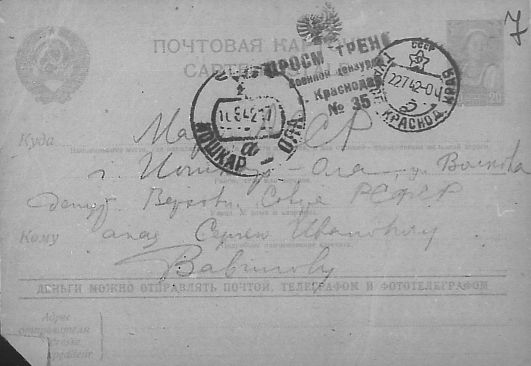 7
ПОЧТОВАЯ КА
CARTE
ПРОСМОТРЕНО
Военной цензурой
Краснодар
№ 35
СССР
22 7 42
КРАСНОД. КРАЙ
ЙОШКАР-ОЛА
Куда Мар. АССР
г. Йошкар-Ола ул. Волкова
депут. Верховн. Совета РСФСР
Кому акад. Сергею Ивановичу
Вавилову
ДЕНЬГИ МОЖНО ОТПРАВЛЯТЬ ПОЧТОЙ, ТЕЛЕГРАФОМ И ФОТОТЕЛЕГРАФОМ
Адрес
отправителя